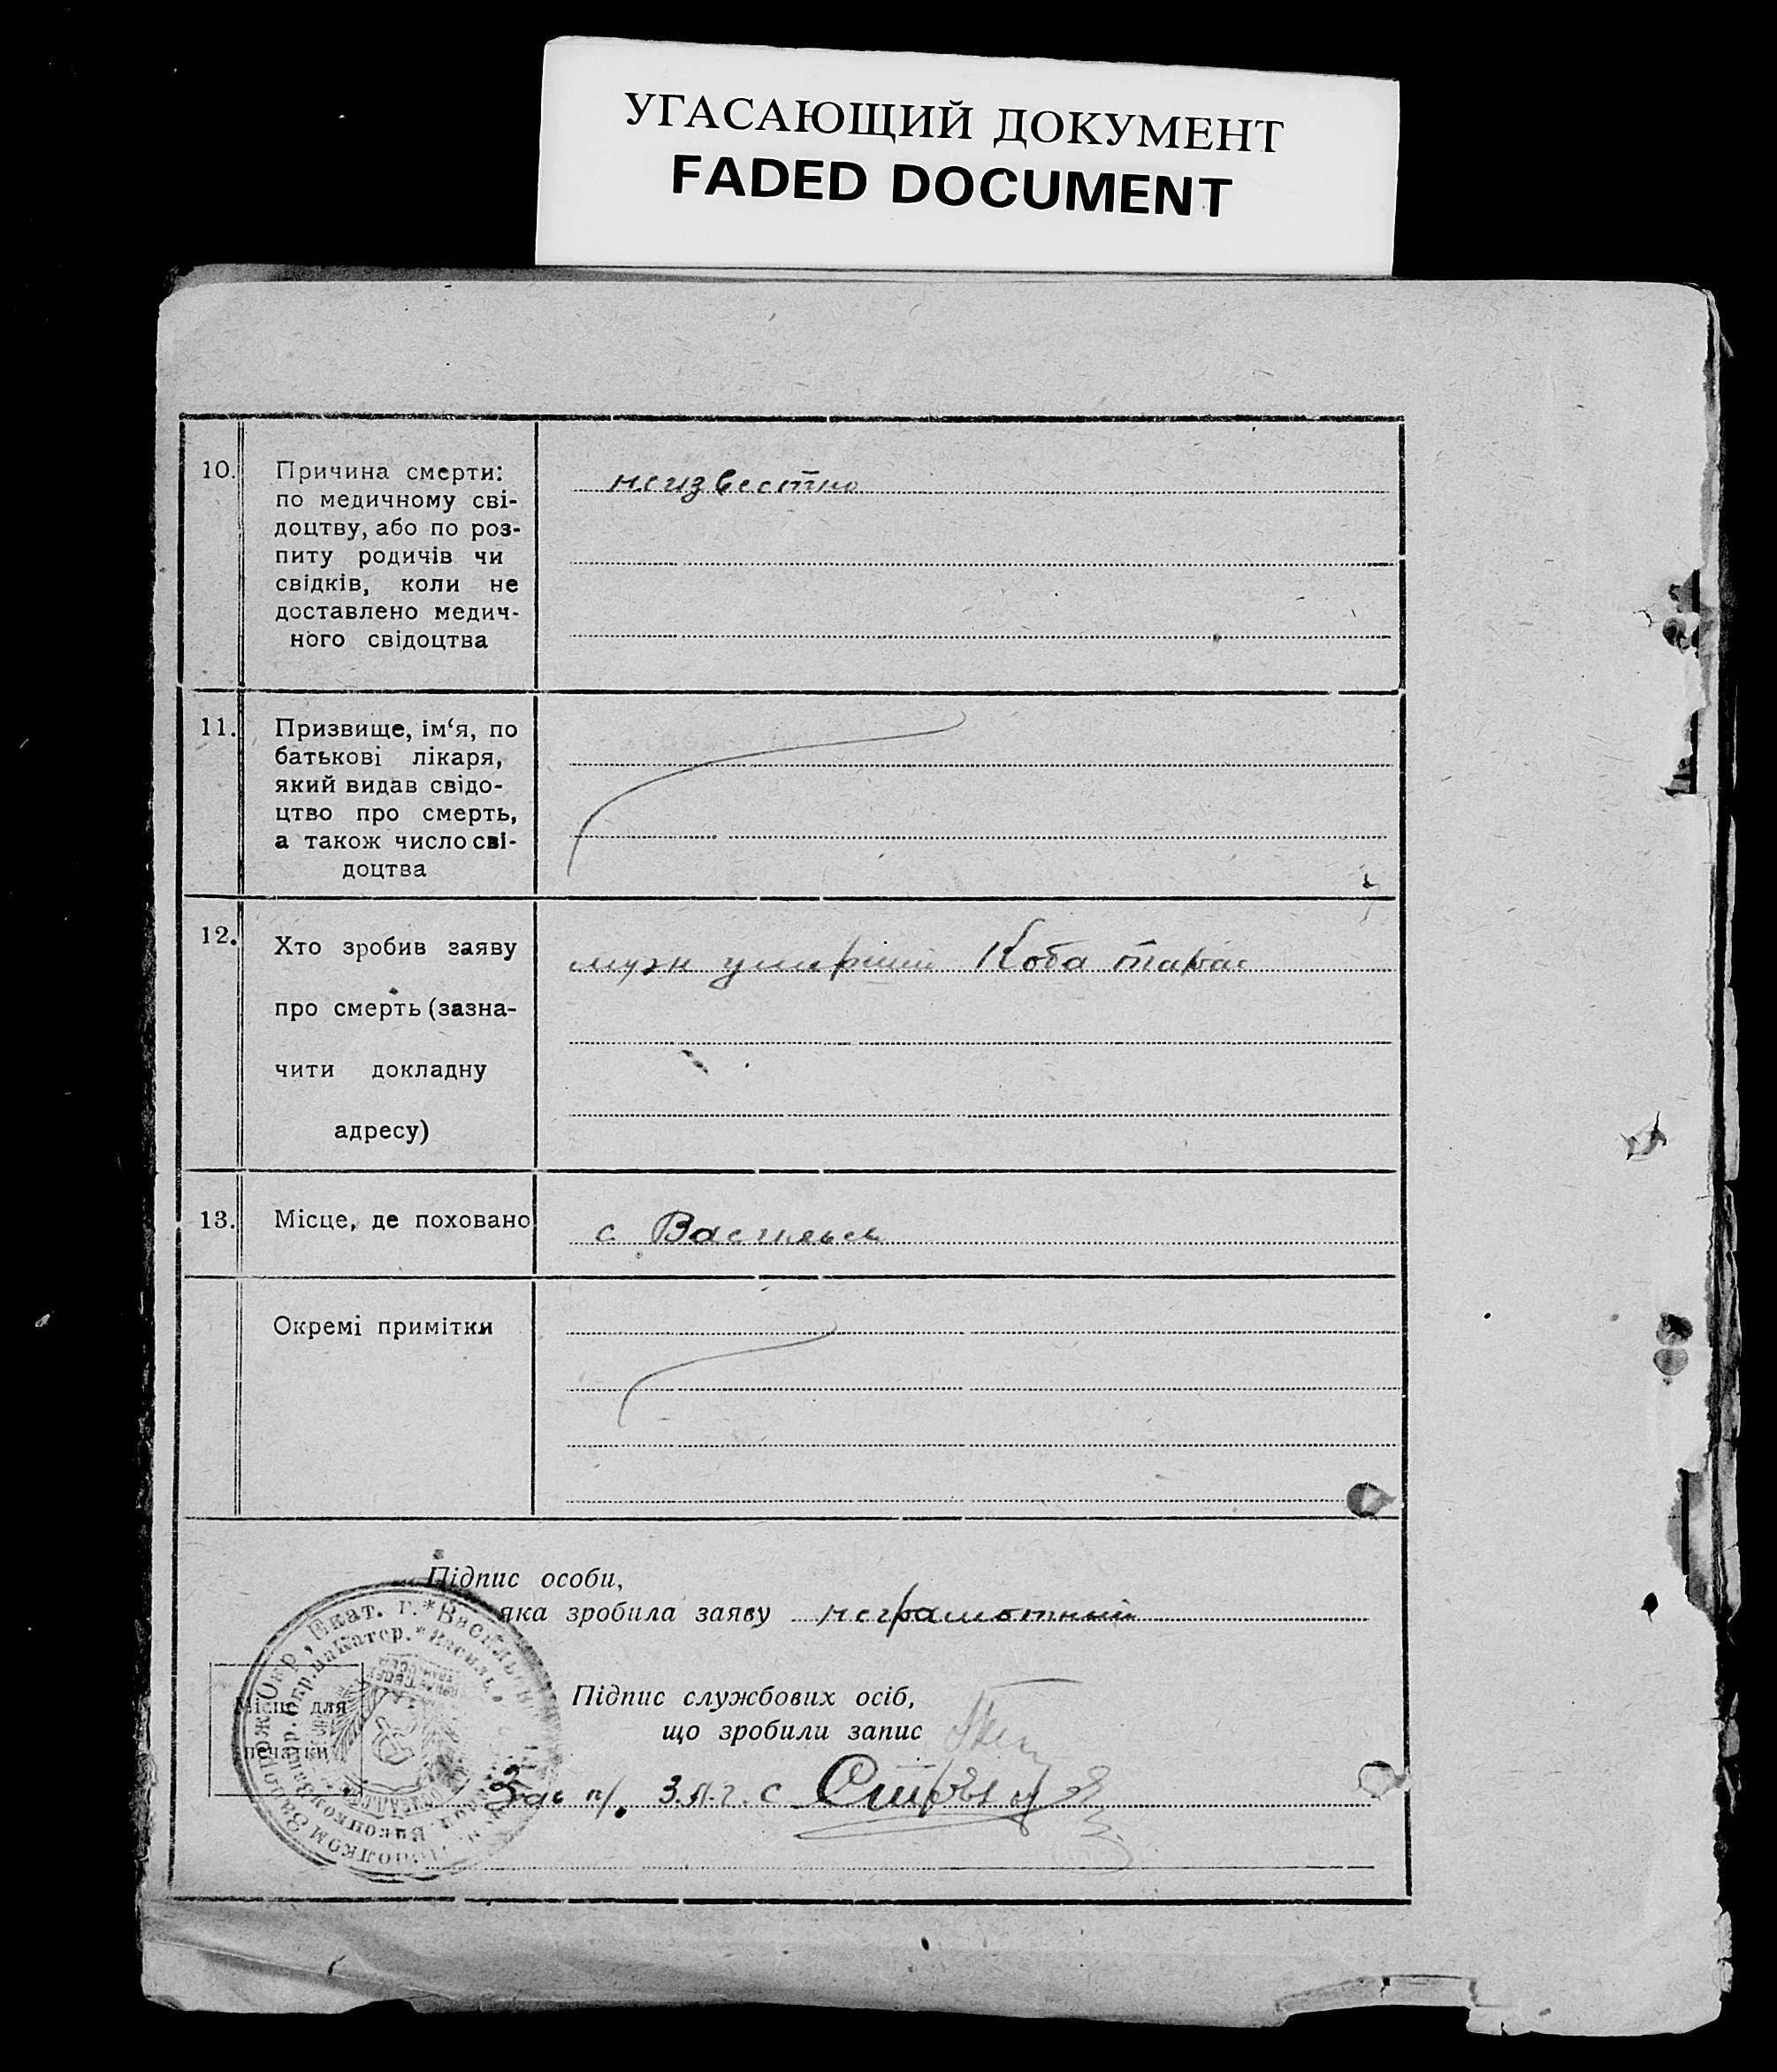 УГАСАЮЩИЙ ДОКУМЕНТ
FADED DOCUMENT
10. Причина смерти:
по медичному сві-
доцтву, або по роз-
питу родичів чи
свідків, коли не
доставлено медич-
ного свідоцтва
неизвестно
11. Призвище, ім‘я, по
батькові лікаря,
який видав свідо-
цтво про смерть,
а також число сві-
доцтва
12. Хто зробив заяву
про смерть (зазна-
чити докладну
адресу)
муж Коба Тарас
13. Місце, де поховано
с
Окремі примітки
Підпис особи,
яка зробила заяву неграмотный
Підпис службових осіб,
що зробили запис
Місце для
печатки